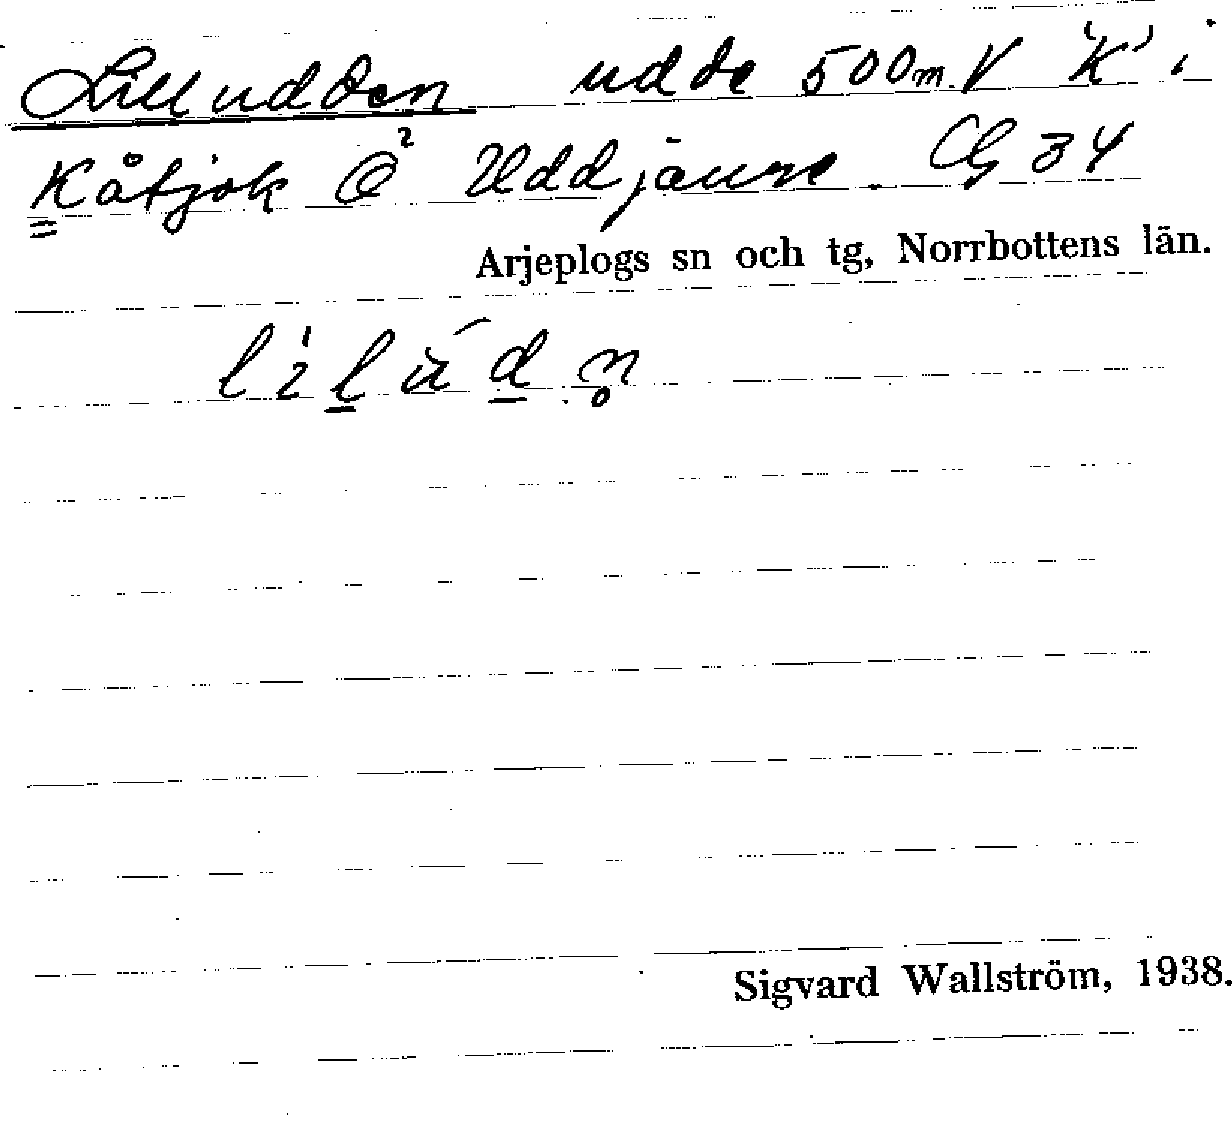 Lilludden udde 500m V 'K' i
Kåtjok @² Uddjaure. CG 34
Arjeplogs sn och tg, Norrbottens län.
lilùdn̥
Sigvard Wallström, 1938.